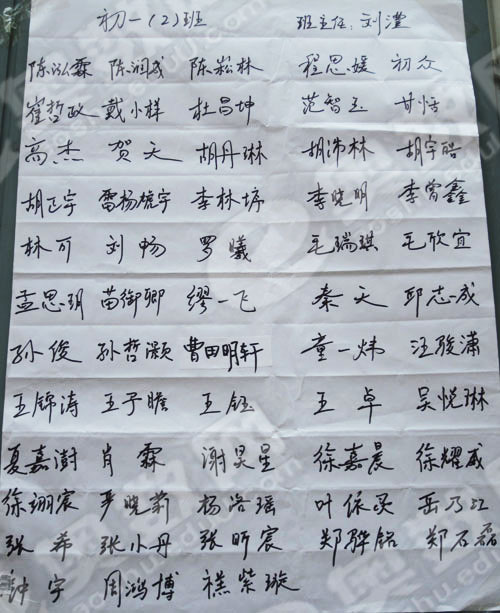 初一（2）班 班主任：刘滢
陈泓霖 陈润成 陈崧林 程思媛 初众
崔哲政 戴小样 杜昌坤 范智玉 甘恬
高杰 贺天 胡丹琳 胡沛林 胡宇皓
胡正宇 雷杨皖宇 李林垿 李晓明 李曾鑫
林可 刘畅 罗曦 毛瑞琪 毛欣宜
孟思玥 苗御卿 缪一飞 秦天 邱志成
孙俊 孙哲灏 曹田明轩 童一炜 汪骏潇
王锦涛 王子瞻 王钰 王卓 吴悦琳
夏嘉澍 肖霖 谢昊星 徐嘉晨 徐耀威
徐翊宸 严晓莉 杨洛瑶 叶依灵 岳乃江
张希 张小丹 张昕宸 郑骅铭 郑石磊
钟宇 周鸿博 禚紫璇